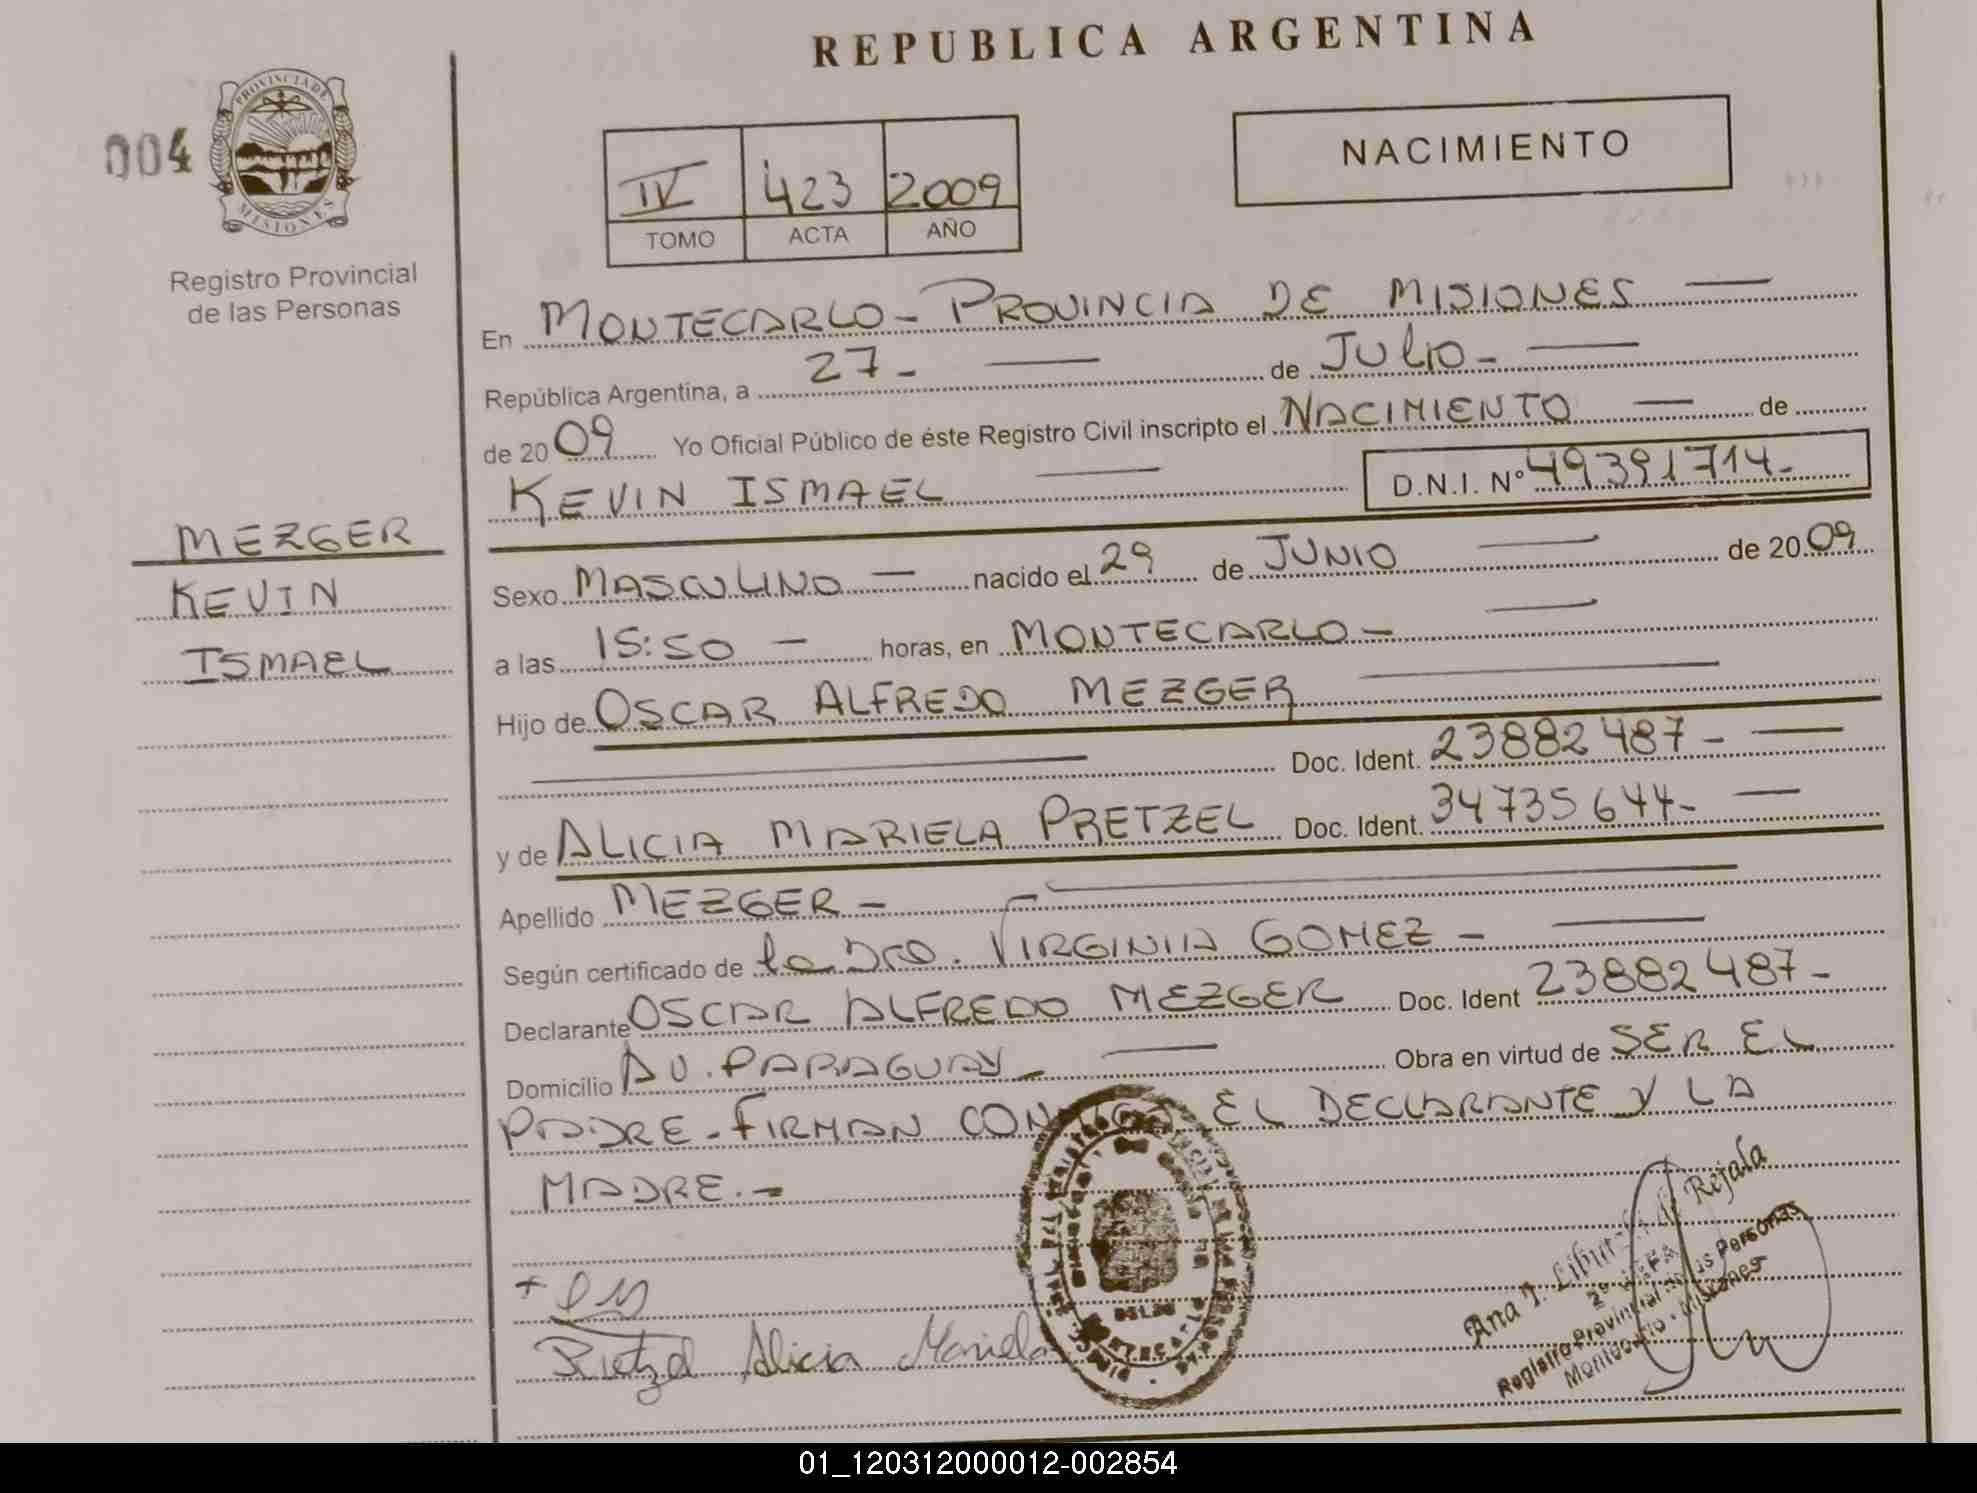 REPUBLICA ARGENTINA
004
PROVINCIA DE MISIONES
Registro Provincial
de las Personas
NACIMIENTO
IV 423 2009
TOMO ACTA AÑO
En MONTECARLO - PROVINCIA DE MISIONES
República Argentina, a 27 - de JULIO -
de 2009 Yo Oficial Público de éste Registro Civil inscripto el NACIMIENTO de
KEVIN ISMAEL D.N.I. Nº 49391714-
MEZGER
KEVIN
ISMAEL
Sexo MASCULINO nacido el 29 de JUNIO de 2009
a las 15:50 - horas, en MONTECARLO -
Hijo de OSCAR ALFREDO MEZGER
Doc. Ident. 23882487-
y de ALICIA MARIELA PRETZEL Doc. Ident. 34735644-
Apellido MEZGER -
Según certificado de la Dra. VIRGINIIA GOMEZ -
Declarante OSCAR ALFREDO MEZGER Doc. Ident 23882487-
Domicilio AV. PARAGUAY - Obra en virtud de SER EL
PADRE - FIRMAN CONMIGO EL DECLARANTE Y LA
MADRE.-
Pretzel Alicia Mariela
Ana I. de Rejala
2º JEFA
Registro Provincial de las Personas
Montecarlo - Misiones
01_120312000012-002854